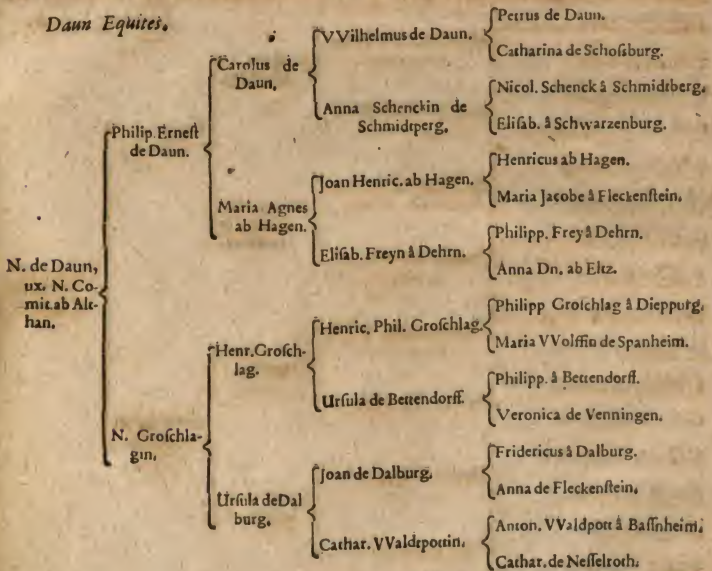 Daun Equites.
N. de Daun,
ux. N. Co-
mit. ab Alt-
han.
Philip. Erneſt
de Daun.
N. Groſchla-
gin.
Carolus de
Daun.
Maria Agnes
ab Hagen.
Henr. Groſch-
lag.
Urſula de Dal
burg.
VVilhelmus de Daun.
Anna Schenckin de
Schmidtperg.
Joan Henric. ab Hagen.
Eliſab. Freyn â Dehrn.
Henric. Phil. Groſchlag.
Urſula de Bettendorff.
Joan de Dalburg.
Cathar. VValdtpottin.
Petrus de Daun.
Catharina de Schoſsburg.
Nicol. Schenck â Schmidtberg.
Eliſab. â Schwarzenburg.
Henricus ab Hagen.
Maria Jacobe â Fleckenſtein.
Philipp. Frey â Dehrn.
Anna Dn. ab Eltz.
Philipp Groſchlag â Dieppurg.
Maria VVolffin de Spanheim.
Philipp. â Bettendorff.
Veronica de Venningen.
Fridericus â Dalburg.
Anna de Fleckenſtein.
Anton. VValdpott â Baſſnheim.
Cathar. de Neſſelroth.